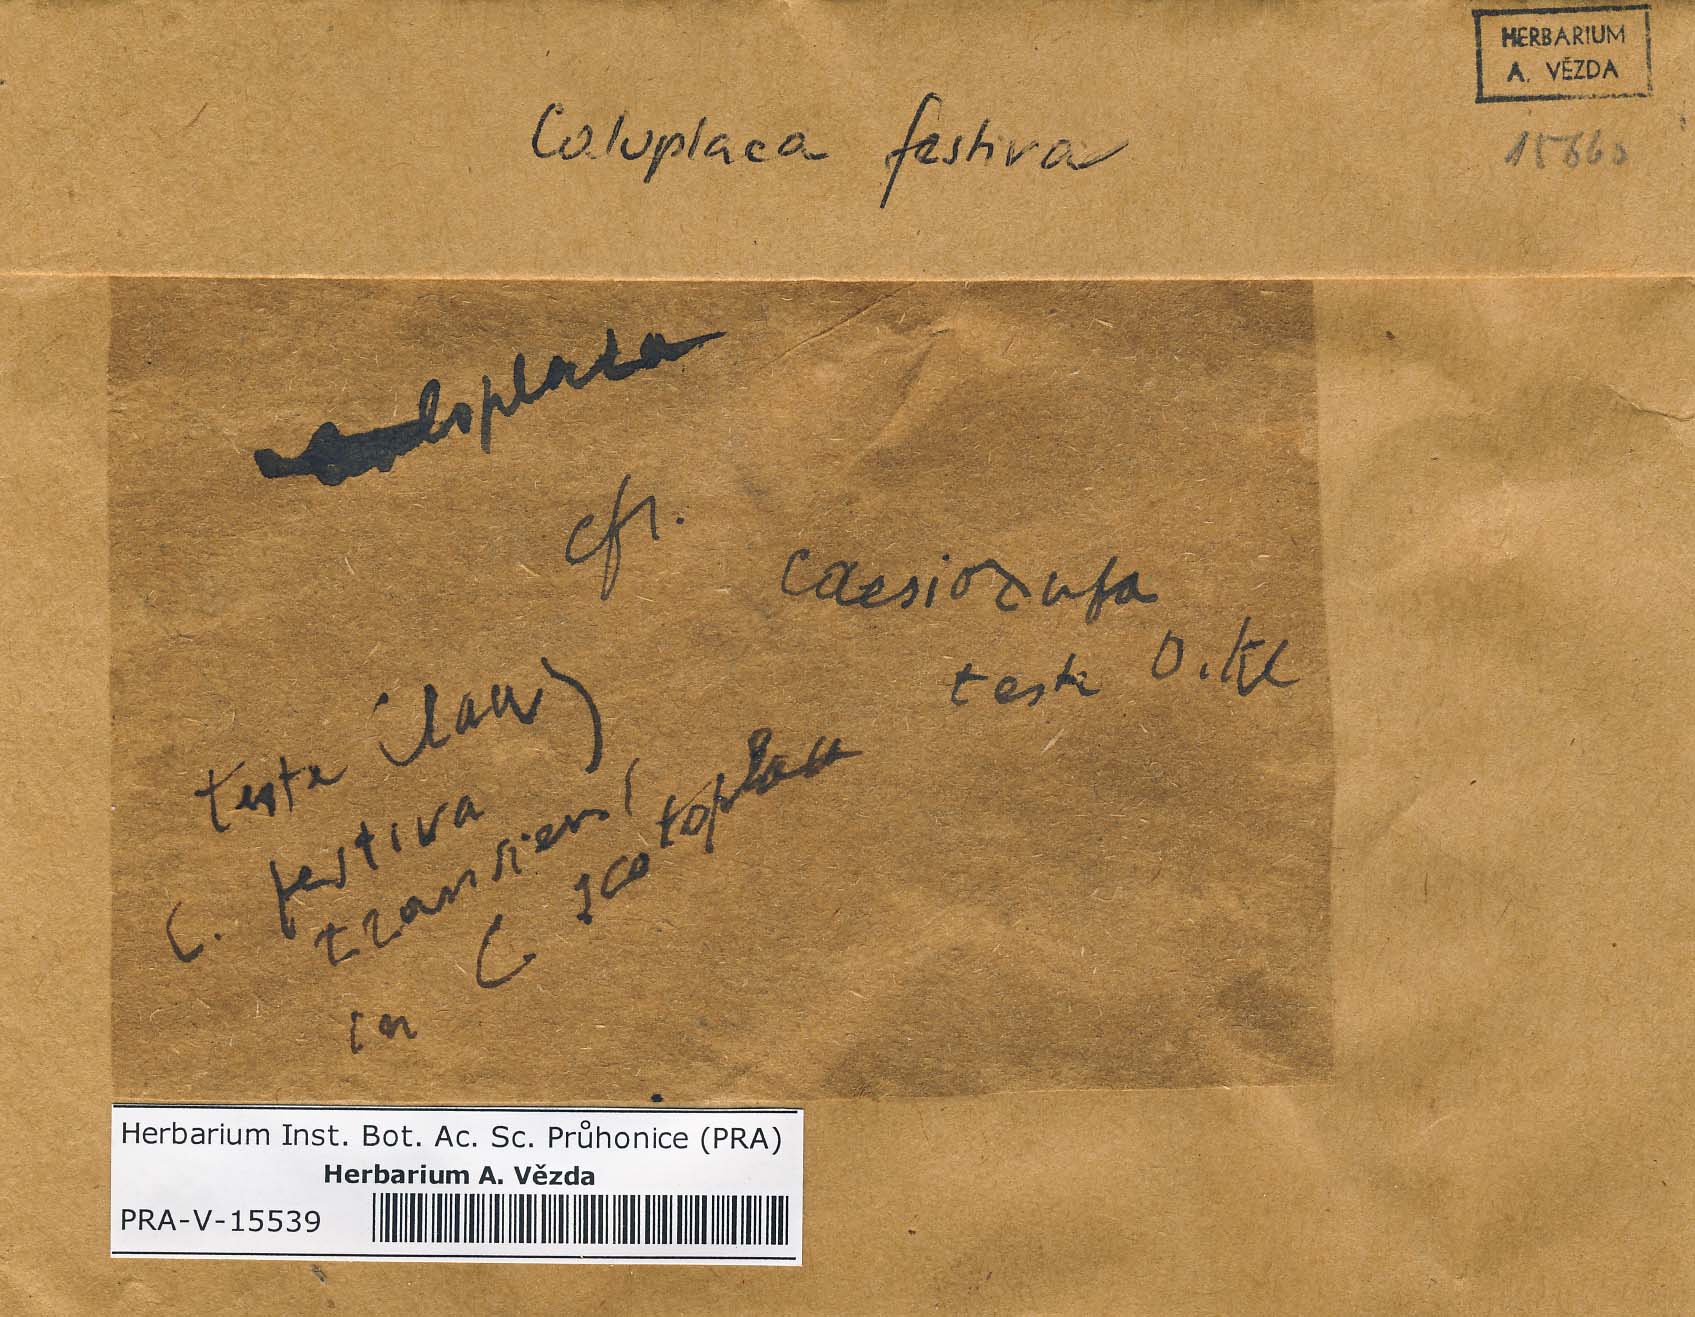 HERBARIUM
A. VĚZDA
Caloplaca festiva
cfr.
caesiorufa
teste
teste Clauz
C. festiva
transiens
in C scotoplaca
Herbarium Inst. Bot. Ac. Sc. Průhonice (PRA)
Herbarium A. Vězda
PRA-V-15539